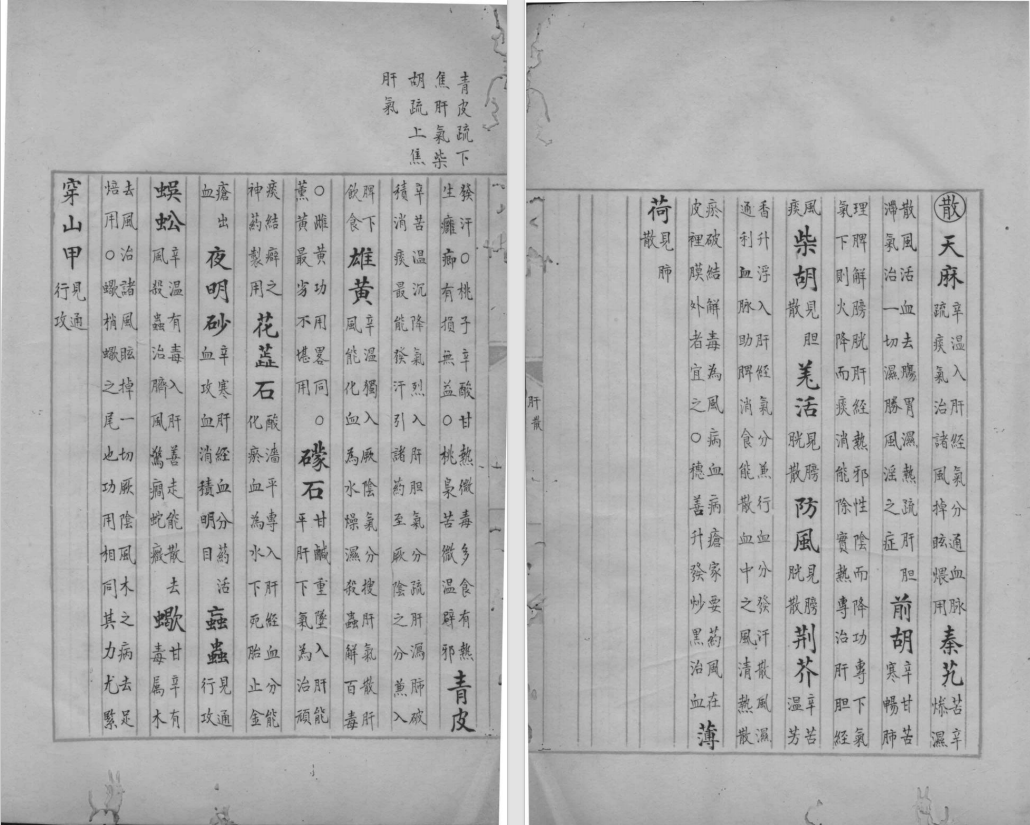 散天麻辛溫入肝經氣分通血脉疏痰氣治諸風掉眩煨用秦艽苦辛燥濕
散風活血去腸胃濕熱疏肝胆滯氣治一切濕勝風淫之症前胡辛甘苦寒暢肺
理脾解膀胱肝經熱邪性陰而降功專下氣氣下則火降而痰消能除實熱專治肝胆經
風痰柴胡見胆散羌活見膀胱散防風見膀胱散荆芥辛苦溫芳
香升浮入肝經氣分兼行血分發汗散風濕通利血脉助脾消食能散血中之風清熱散
瘀破結解毒為風病血病瘡家要药風在皮裡膜外者宜之○穗善升發炒黑治血薄
荷見肺散
肝散
青皮疏下
焦肝氣柴
胡疏上焦
肝氣
發汗○桃子辛酸甘熱微毒多食有熱生癰癤有損無益○桃梟苦微溫辟邪青皮
辛苦溫沉降氣烈入肝胆氣分疏肝瀉肺破積消痰最能發汗引諸药至厥陰之分兼入
脾下飲食雄黄辛溫獨入厥陰氣分搜肝氣散肝風能化血為水燥濕殺蟲解百毒
○雌黄功用畧同○薰黄最劣不堪用礞石甘鹹重墜入肝能平肝下氣為治頑
痰結癖之神药製用花蕊石酸濇平專入肝經血分能化瘀血為水下死胎止金
瘡出血夜明砂辛寒肝經血分药活血攻血消積明目蝱蟲見通行攻
蜈蚣辛溫有毒入肝善走能散去風殺蟲治臍風驚癇蛇瘢蠍甘辛有毒属木
去風治諸風眩掉一切厥陰風木之病去足焙用○蠍梢蠍之尾也功用相同其力尤緊
穿山甲見通行攻